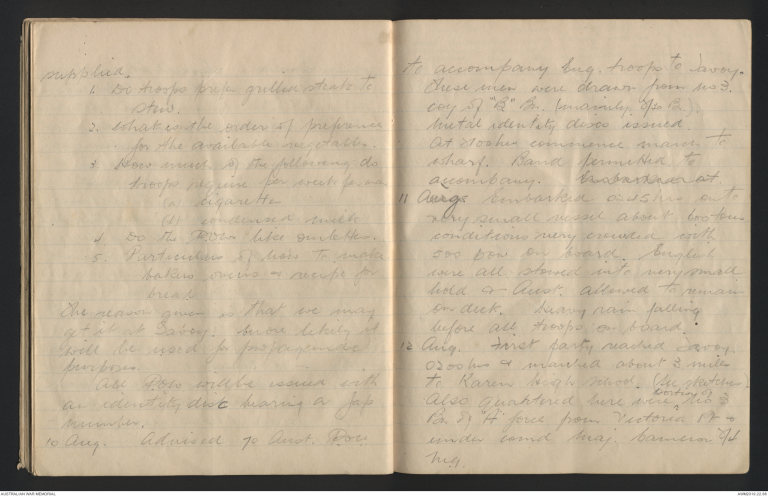 supplied.
1. Do troops prefer grilled steak to
stew.
2. What is the order of preference
for the available vegetables.
3. How much of the following do
troops require per week per man
(a) cigarettes
(b) condensed milk
4. Do the POWs like omlettes.
5. Particulars of how to make
bakers ovens & recipe for
bread
The reason given is that we may
get it at Tavoy. More likely it
will be used for propaganda
purposes.
All POWs will be issued with
an identity disc bearing a Jap
number.
10 Aug. Advised 70 Aust. POW
to accompany Eng. troops to Tavoy.
These men were drawn from no 3.
coy of "B" Bn. (mainly Bn.)
Metal identity discs issued.
At hrs commence march to
wharf. Band permitted to
accompany. Embarked at
11 Aug. Embarked 0245 hrs onto
very small vessel about tons
conditions very crowded with
500 pow on board. English
were all stowed into very small
hold & Aust. allowed to remain
on deck. Heavy rain falling
before all troops on board.
12 Aug. First party reached Tavoy
0200 hrs & marched about 3 miles
to Karen High School. (See sketches)
Also quartered here were portion of No 3
Bn. of "A" force from Victoria Pt &
under comd Maj. Cameron